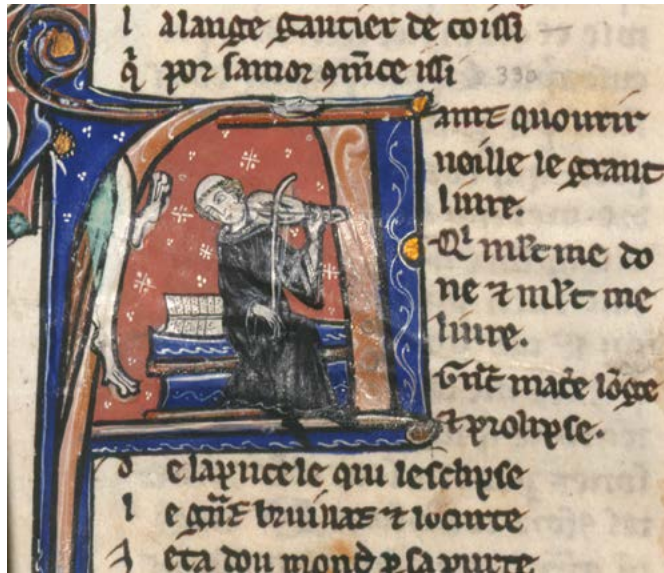 l alange gautier de coissi
q̓ por samor 9mēce issi 330
ainz quourir
ueille le grant
liure.
Qi mlt me do
ne ⁊ mlt me
liure.
Grāt mat̄e lōge
⁊ prolipse.
d e la pucele qui leschypse
l e grāz bruinas ⁊ locurte
A eta dou mond p sa purte.